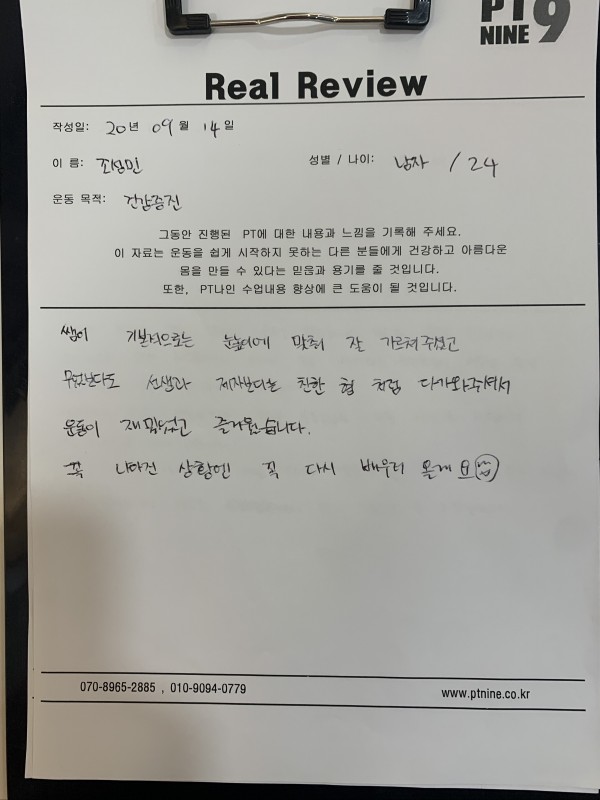 PT NINE 9
Real Review
작성일: 20년 09월 14일
이 름: 최성민
성별 / 나이: 남자 / 24
운동 목적: 건강증진
그동안 진행된 PT에 대한 내용과 느낌을 기록해 주세요.
이 자료는 운동을 쉽게 시작하지 못하는 다른 분들에게 건강하고 아름다운
몸을 만들 수 있다는 믿음과 용기를 줄 것입니다.
또한, PT나인 수업내용 향상에 큰 도움이 될 것입니다.
쌤이 기본적으로는 눈높이에 맞춰 잘 가르쳐주셨고
무엇보다도 선생과 제자보다는 친한 형 처럼 다가와주셔서
운동이 재밌었고 즐거웠습니다.
꼭 나아진 상황엔 꼭 다시 배우러 올게요
070-8965-2885 , 010-9094-0779
www.ptnine.co.kr